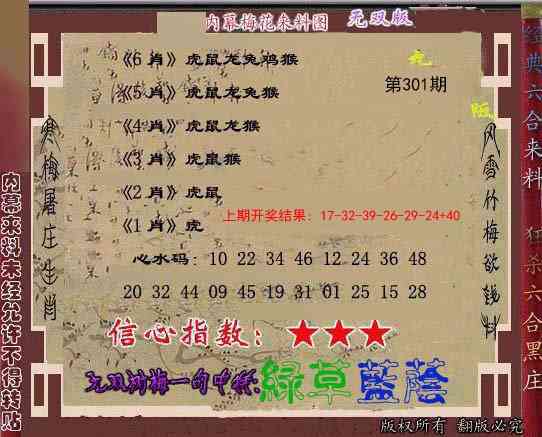 内幕梅花来料图 无双版
《6 肖》虎鼠龙兔鸡猴
《5 肖》虎鼠龙兔猴
第301期
《4 肖》虎鼠龙猴
《3 肖》虎鼠猴
《2 肖》虎鼠
上期开奖结果：17-32-39-26-29-24+40
《1 肖》虎
心水码：10 22 34 46 12 24 36 48
20 32 44 09 45 19 31 01 25 15 28
信心指数：★★★
绿草蓝荫
版权所有 翻版必究
寒梅屠庄生肖
风雪竹梅欲钱料
内幕来料未经允许不得转贴
经典六合来料 狂杀六合黑庄